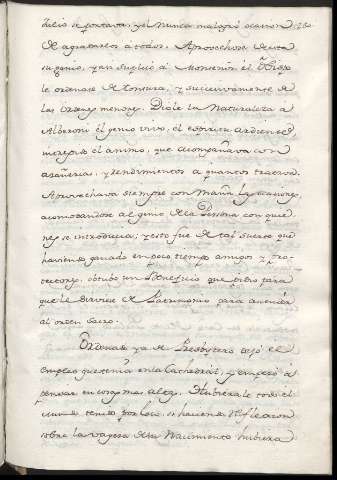 de agradarlos a todos. Aprovechose de esta
su genio, y assi suplicó a Monseñor el Obispo
le ordenase de tonsura, y succesivamente de
las Ordenes menores. Diole la Naturaleza a
Alberoni el genio vivo, el espiritu ardiente,
intrepido el animo, que acompañava con
y rendimientos a quantos tratava.
Aprovechava siempre con maña las ocasiones,
acomodandose al genio de la Persona con quie
nes se introducia; y esto fue de tal suerte que
haviendo ganado en poco tiempo amigos y Pro-
tectores, obtubo un Beneficio que pidio para
que le sirviese de Patrimonio para ascender
al orden sacro.
Ordenado ya de Presbytero dejó el
empleo que tenia en la Cathedral, y empezó a
pensar en cosas mas altas. Hubierale todo el
mundo tenido por loco, si haciendo reflexion
sobre la vageza de su Nacimiento hubiera